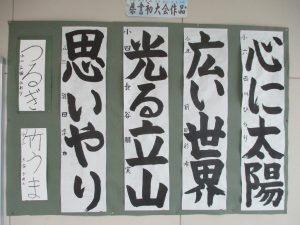 県書初大会作品
心に太陽
広い世界
光る立山
思いやり
つるぎ
竹うま